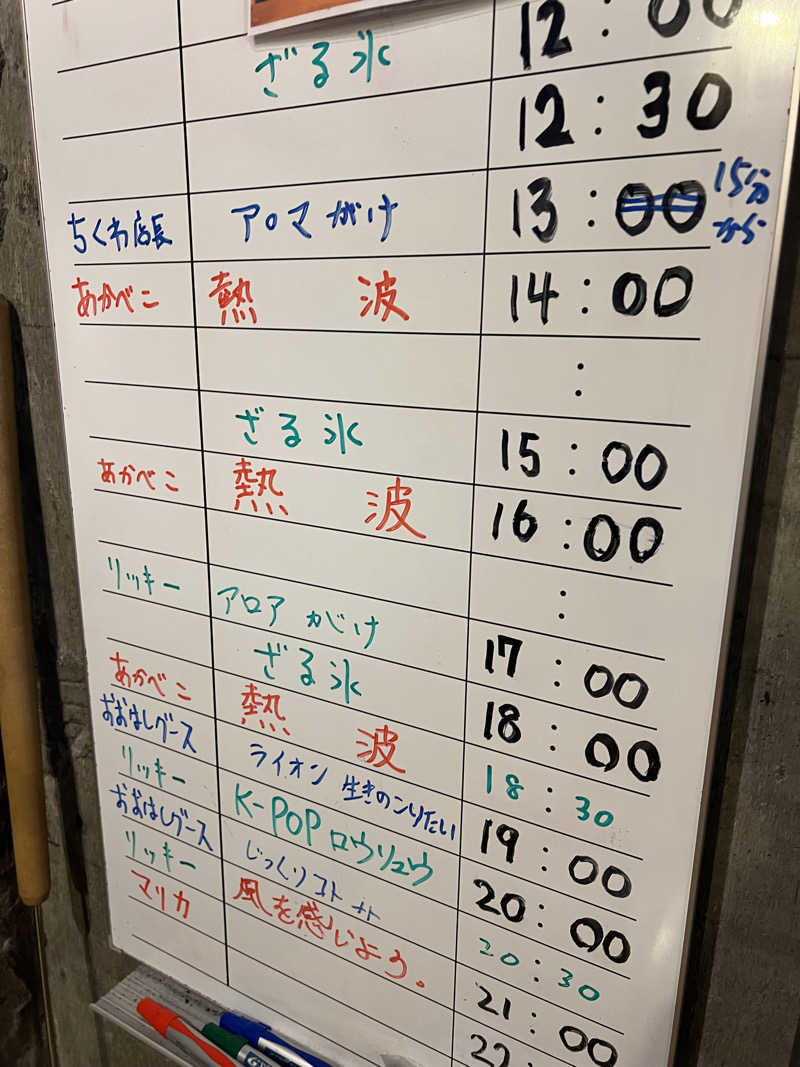 ざる氷 12:00
12:30
ちくわ店長 アロマがけ 13:00 15分から
あかべこ 熱 波 14:00
:
ざる氷 15:00
あかべこ 熱 波 16:00
:
リッキー アロアがけ 17:00
ざる氷 18:00
あかべこ 熱 波 18:30
おおはしグース ライオン 生きのこりたい 19:00
リッキー K-POPロウリュウ 20:00
おおはしグース じっくりコト 20:30
リッキー 風を感じよう。 21:00
マリカ 22: